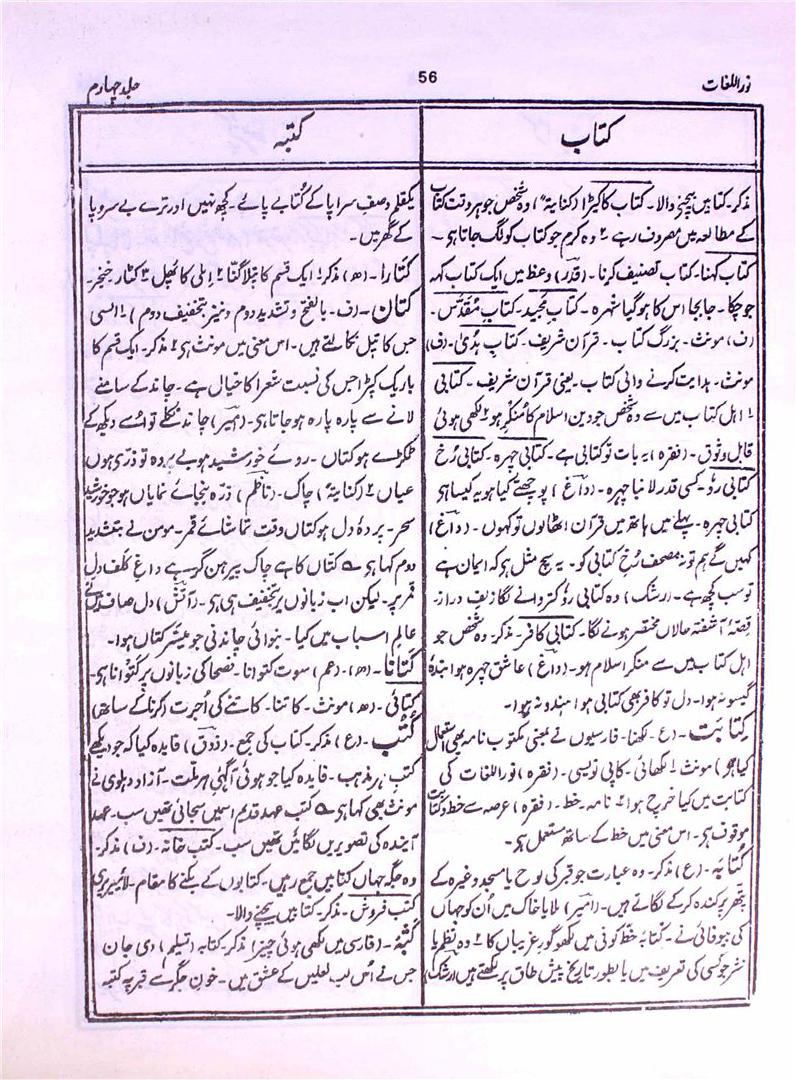 نور اللغات
56
جلد چہارم
کتاب
مذکر۔ کتابیں بیچنے والا۔ کتاب کا کیڑا (کنایۃً) وہ شخص جو ہر وقت کتاب
کے مطالعہ میں مصروف رہے ۲ وہ کرم جو کتاب کو لگ جاتا ہے۔
کتاب کہنا۔ کتاب تصنیف کرنا۔ (قدر) وعظ میں ایک کتاب کہہ
جو چکا۔ جابجا اس کا ہو گیا شہرہ۔ کتاب مجید۔ کتاب مقدّس۔
(ف) مونث۔ بزرگ کتاب۔ قرآن شریف۔ کتاب ہُدیٰ۔ (ف)
مونث۔ ہدایت کرنے والی کتاب۔ یعنی قرآن شریف۔ کتابی
۱۔ اہل کتاب میں سے وہ شخص جو دین اسلام کا منکر ہو ۲ لکھی ہوئی
قابل وثوق۔ (فقرہ) یہ بات تو کتابی ہے۔ کتابی چہرہ۔ کتابی رُخ
کتابی رو۔ کسی قدر لانبا چہرہ۔ (داغ) پوچھتے کیا ہو یہ کیسا ہی
کتابی چہرہ۔ پہلے میں ہاتھ میں قرآن اٹھا لوں تو کہوں۔ (داغ)
کہیں گے ہم تو نہ مصحف رُخ کتابی کو۔ یہ سچ مثل ہی کہ ایمان ہے
تو سب کچھ ہے۔ (رشک) وہ کتابی رو کتروانے لگا زلف دراز۔
قصۂ آشفتہ حالاں مختصر ہونے لگا۔ کتابی کافر۔ مذکر۔ وہ شخص جو
اہل کتاب میں سے منکر اسلام ہو۔ (داغ) عاشق چہرہ ہوا بندۂ
گیسو نہ ہوا۔ دل تو کافر بھی کتابی ہوا ہندو نہ ہوا۔
کتابت۔ (ع) لکھنا۔ فارسیوں نے بمعنی مکتوب نامہ بھی استعمال
کیا ہے) مونث۔ ۱ لکھائی۔ کاپی نویسی۔ (فقرہ) نور اللغات کی
کتابت میں کیا خرچ ہوا ۲ نامہ۔ خط۔ (فقرہ) عرصہ سے خط و کتابت
موقوف ہی۔ اس معنی میں خط کے ساتھ مستعمل ہی۔
کتابہ۔ (ع) مذکر۔ وہ عبارت جو قبر کی لوح یا مسجد وغیرہ کے
پتھر پر کندہ کر کے لگاتے ہیں۔ (امیر) ملایا خاک میں اُن کو جہاں
کی بیوفائی نے۔ کتابہ خط کوفی میں لکھو گور غریباں کا ۲ وہ نظم یا
نثر جو کسی کی تعریف میں یا بطور تاریخ پیش طاق پر لکھتے ہیں (رشک)
کتبہ
یکقلم وصف سراپا کے کتابے پائے۔ کچھ نہیں اور ترے بے سر و پا
کے گھر میں۔
کتارا۔ (ھ) مذکر ۱ ایک قسم کا پتلا گنّا ۲ املی کا پھل ۳ کٹار۔ خنجر۔
کتان۔ (ف۔ بالفتح و تشدید دوم و نیز بتخفیف دوم) ۱۔ السی
جس کا تیل نکالتے ہیں۔ اس معنی میں مونث ہی ۲ مذکر۔ ایک قسم کا
باریک کپڑا جس کی نسبت شعرا کا خیال ہے۔ چاند کے سامنے
لانے سے پارہ پارہ ہو جاتا ہی۔ (امیر) چاند نکلے تو اُسے دیکھ کے
ٹکڑے ہو کتاں۔ روئے خورشید ہو بے پردہ تو ذرّی ہوں
عیاں ۲ (کنایۃً) چاک۔ (ناظم) ذرّہ بنجائے نمایاں ہو جو خورشید
سحر۔ پردۂ دل ہو کتاں وقت تماشائے قمر۔ مومن نے بتشدید
دوم کہا ہی ؎ کتّاں کا ہے چاک پیرہن گر سے داغ کلف دل
قمر پر۔ لیکن اب زبانوں پر بتخفیف ہی ہی۔ (آتش) دل صاف
عالم اسباب میں کیا۔ بنوائی چاندنی جو میسّر کتاں ہوا۔
کتانا۔ (ھ)۔ (عم) سوت کتوانا۔ فصحا کی زبانوں پر کتوانا ہی۔
کتائی۔ (ھ) مونث۔ کاتنا۔ کاتنے کی اُجرت (کرنا کے ساتھ)
کُتُب۔ (ع) مذکر۔ کتاب کی جمع۔ (ذوق) فایدہ کیا کہ جو دیکھے
کتب ہر مذہب۔ فایدہ کیا جو ہوئی آگہی ہر ملّت۔ آزاد دہلوی نے
مونث بھی کہا ہی ؎ کتب عہد قدیم اسمیں سجائی تھیں سب۔ عہد
آیندہ کی تصویریں لگائیں تھیں سب۔ کتب خانہ۔ (ف) مذکر۔
وہ جگہ جہاں کتابیں جمع رہیں۔ کتابوں کے بکنے کا مقام۔ لائبریری
کتب فروش۔ مذکر۔ کتابیں بیچنے والا۔
کتبہ۔ (فارسی میں لکھی ہوئی چیز) مذکر۔ کتابہ (تسلیم) دی جان
جس نے اُس لب لعلیں کے عشق میں۔ خون جگر سے قبر پہ کتبہ